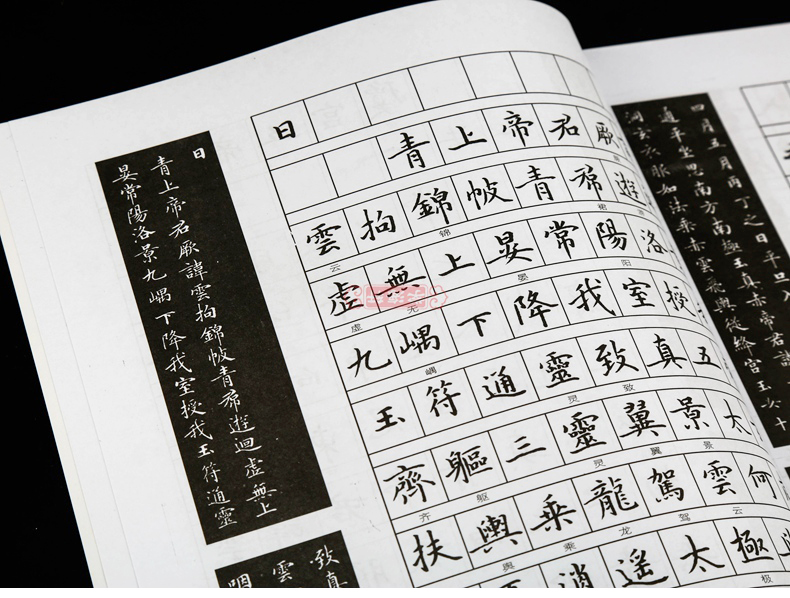 日
青上帝君厥諱雲拘錦帔青帬遊迴虛無上
晏常陽洛景九嵎下降我室授我玉符通靈
致真
雲
日
青上帝君厥
雲拘錦帔青帬遊
云 锦 裙 游
虛無上晏常陽洛
虚 无 晏 阳
九嵎下降我室授
嵎
玉符通靈致真五
灵 致
齊軀三靈翼景太
齐 躯 灵 翼 景
扶輿乘龍駕雲何
舆 乘 龙 驾 云
消遙太極
极
四月五月丙丁之日平旦入
通平坐思南方南極玉真赤帝君諱
洞玄衣服如法乘赤雲飛輿從絳宮玉女十